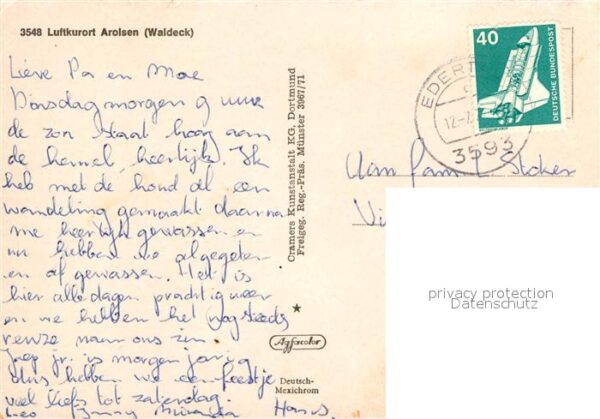 3548 Luftkurort Arolsen (Waldeck)
Lieve Pa en Moe
Dinsdagmorgen 9 uur
de zon staat hoog aan
de hemel, heerlijk. Ik
heb met de hond al een
wandeling gemaakt daarna
me heerlijk gewassen en
nu hebben we afgegeten
en af gewassen. Het is
hier alle dagen prachtig weer
en we hebben het nog steeds
reuze naar ons zin.
Joep jr. is morgen jarig
dus hebben we een feestje
veel liefs tot zaterdag.
Leo Jenny Hans.
Cramers Kunstanstalt KG. Dortmund
Freigeg. Reg.-Präs. Münster 3967/71
Agfacolor
Deutsch-
Mexichrom
40
DEUTSCHE BUNDESPOST
EDERT
12.-7.
3593
Aan fam. Stoker
privacy protection
Datenschutz